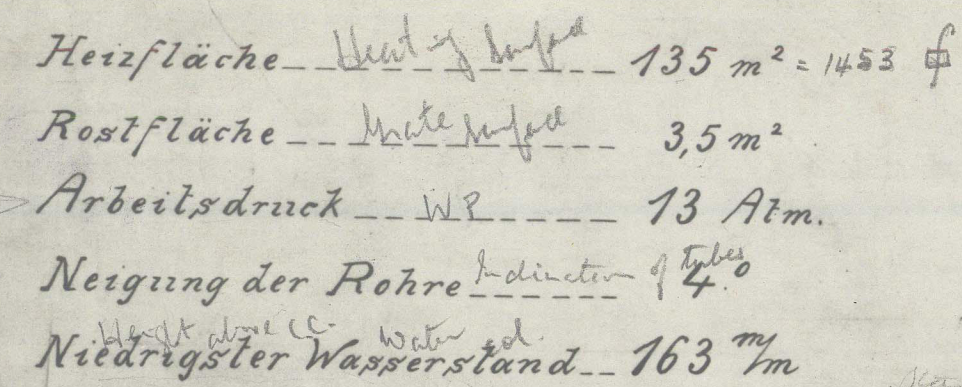 Heizfläche Heating Surface 135 m² = 1453
Rostfläche Grate Surface 3,5 m²
Arbeitsdruck WP 13 Atm.
Neigung der Rohre Inclination of tubes 4°
Height above CC. Water
Niedrigster Wasserstand 163 m/m